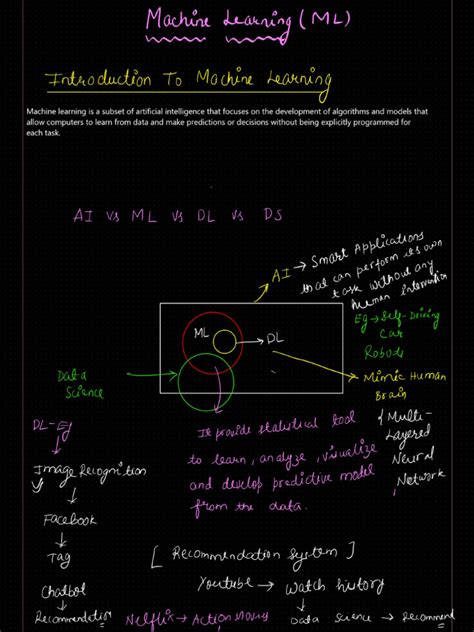 Machine Learning (ML)
Introduction To Machine Learning
Machine learning is a subset of artificial intelligence that focuses on the development of algorithms and models that
allow computers to learn from data and make predictions or decisions without being explicitly programmed for
each task.
AI vs ML vs DL vs DS
AI → Smart Applications
that can perform its own
task without any
human intervention
Eg → Self-Driving
Car
Robots
ML
→ DL
Data
Science
→ Mimic Human
Brain
DL-Eg
It provide statistical tool
to learn, analyze, visualize
and develop predictive model
from the data.
{ Multi-
Layered
Neural
Network
Image Recognition
↓
Facebook
↓
Tag
[ Recommendation System ]
Chatbot
Youtube → Watch history
Recommendation
Netflix → Action Movies
Data Science → Recommend